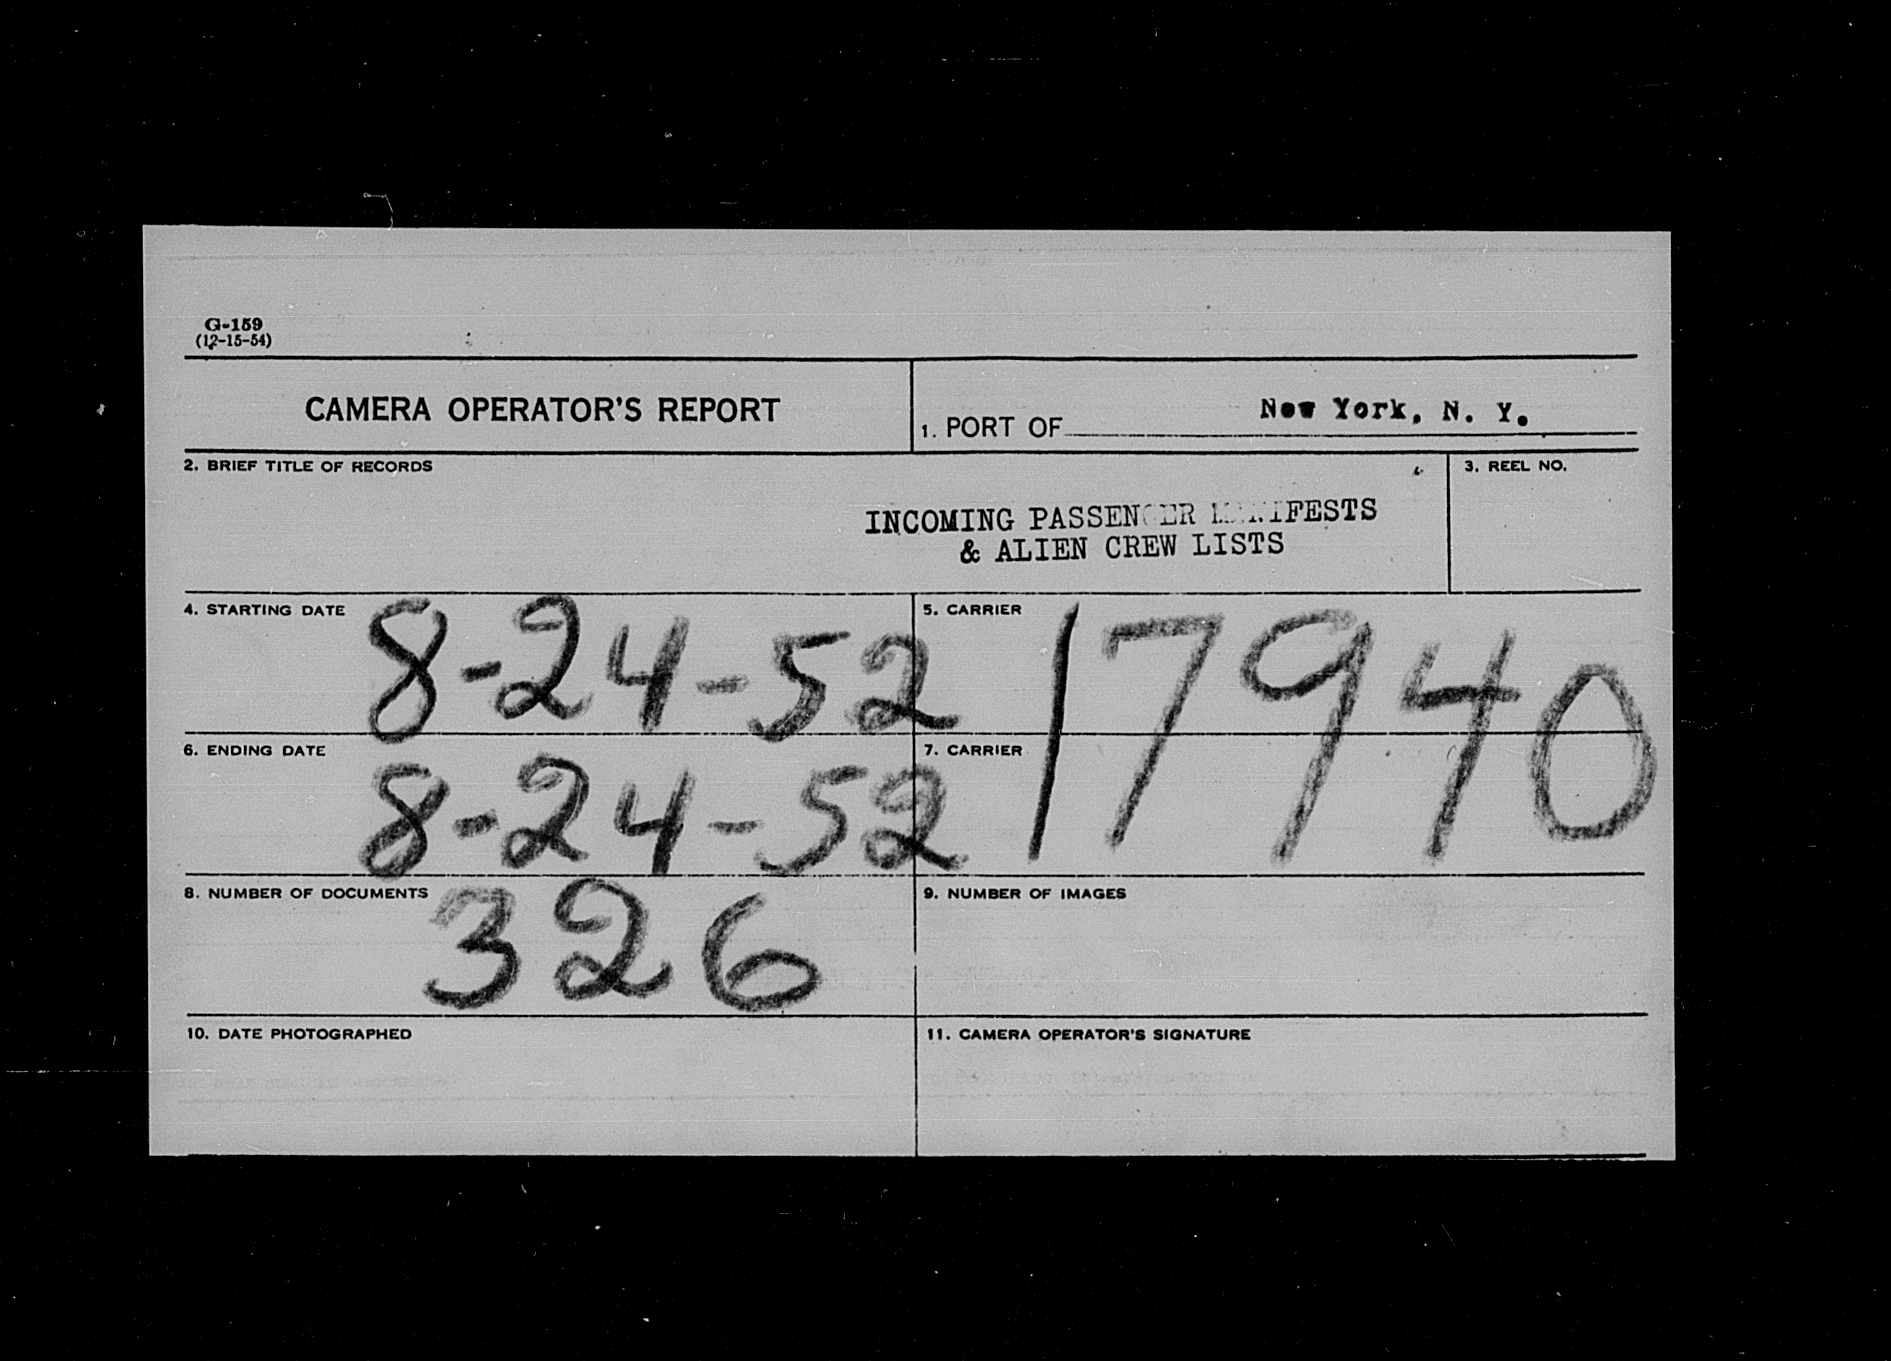 G-159
(12-15-54)
CAMERA OPERATOR'S REPORT
1. PORT OF New York, N. Y.
2. BRIEF TITLE OF RECORDS
3. REEL NO.
INCOMING PASSENGER MANIFESTS
& ALIEN CREW LISTS
4. STARTING DATE 8-24-52
5. CARRIER
17940
6. ENDING DATE 8-24-52
7. CARRIER
8. NUMBER OF DOCUMENTS 326
9. NUMBER OF IMAGES
10. DATE PHOTOGRAPHED
11. CAMERA OPERATOR'S SIGNATURE